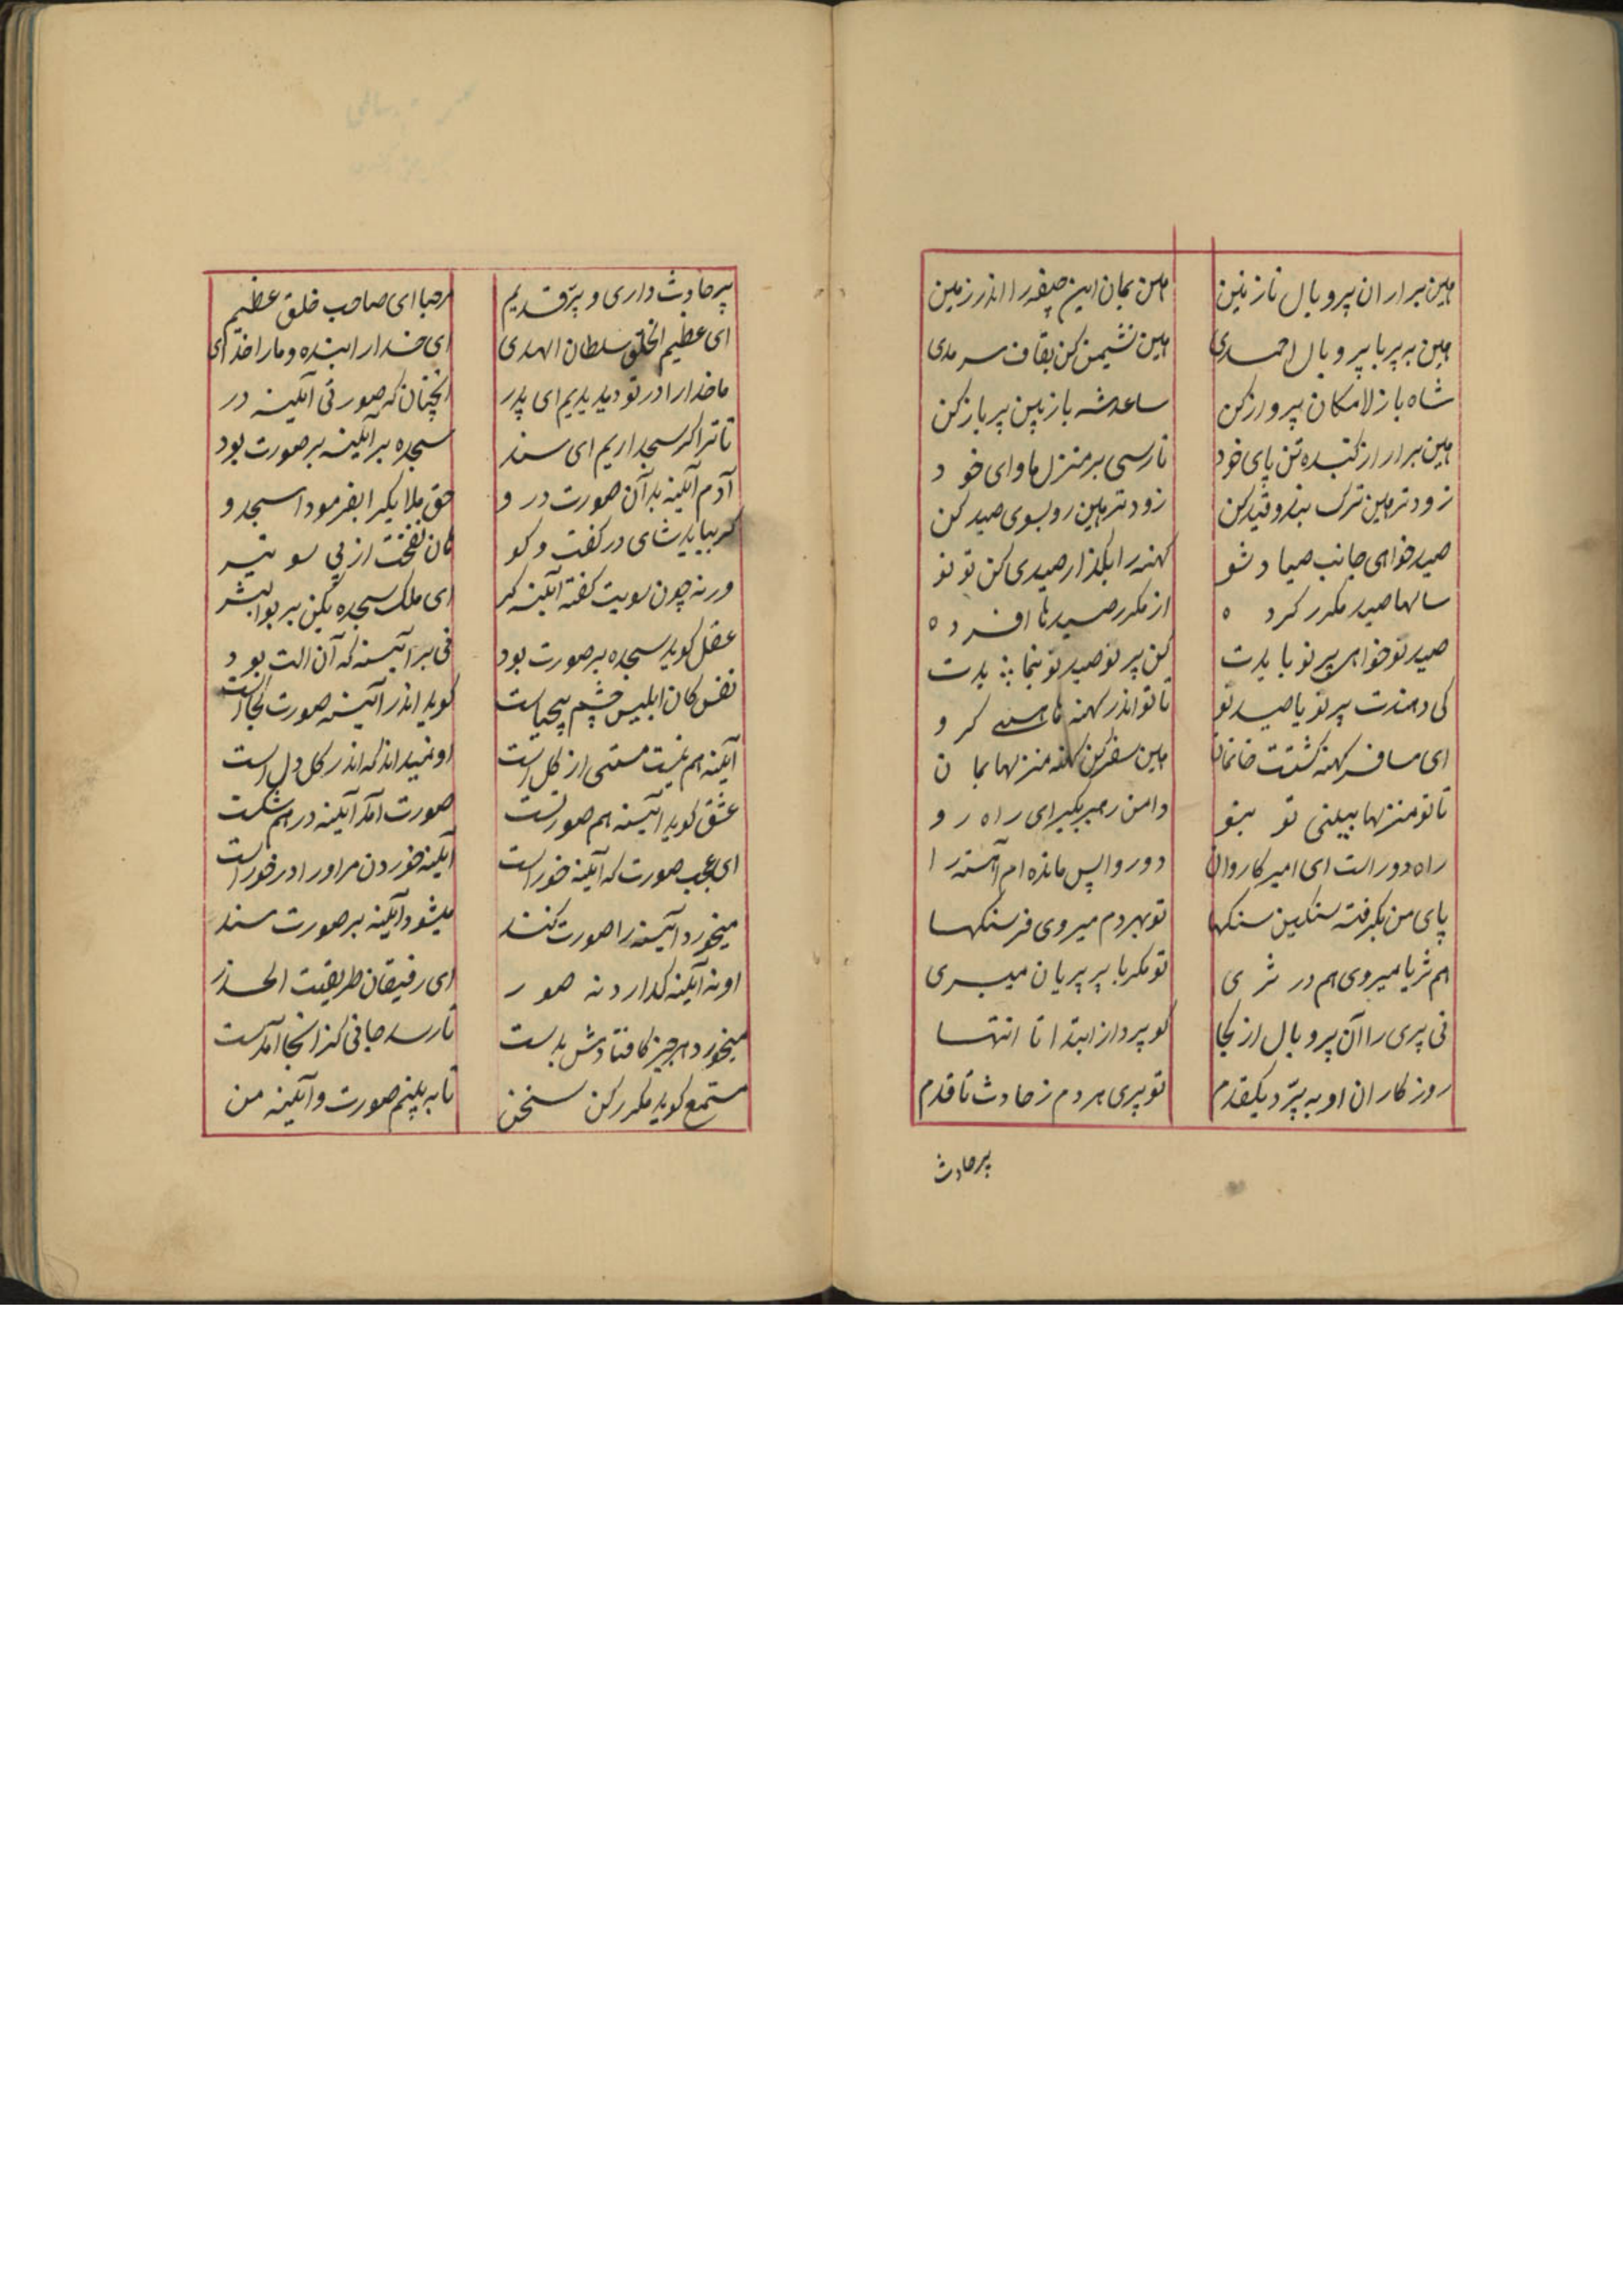 هین برار ان پر و بال نازنین هین بمان این جیفه را اندر زمین
هین به پر با پر و بال احمدی هین نشیمن کن بقاف سرمدی
شاه باز لامکان پرواز کن ساعد شه باز بین پر باز کن
هین برار از کنده تن پای خود تا رسی بر منزل ماوای خود
زودتر هین ترک بند و قید کن زودتر هین رو بسوی صید کن
صید خواهی جانب صیاد شو کهنه را بگذار صیدی کن تو نو
سالها صید مکرر کرده از مکرر صیدها افرده
صید نو خواهی پر نو بایدت کن پر نو صید نو بنمایدت
کی دهندت پر نو یا صید نو تا تو اندر کهنه ها هستی کرو
ای مسافر کهنه کشتت خانمان هین سفر کن کهنه منزلها بمان
تا تو منزلها ببینی تو بنو دامن رهبر بگیر ای راه رو
راه دور است ای امیر کاروان دور واپس مانده ام آهسته را
پای من بگرفته سنگین سنکها تو بهر دم میروی فرسنکها
هم ثریا میروی هم در ثری تو مکر با پر پریان میپری
نی پری را آن پر و بال از کجا کو پرد از ابتدا تا انتها
روزکاران او به پرّد یکقدم تو پری هر دم ز حادث تا قدم
پر حادث
پر حادث داری و پرّ قدیم مرحبا ای صاحب خلق عظیم
ای عظیم الخلق سلطان الهدی ای خدا را بنده و ما را خدای
ما خدا را در تو دیدیم ای پدر انچنان که صورتی آئینه در
تا ترا کر سجد اریم ای سند سجده بر آئینه بر صورت بود
آدم آئینه بد آن صورت در و حق ملایک را بفرمود اسجدو
کر بیایدشای در کفت و کو کان نفخت از پی سویته
ورنه چون سویت کفته آئینه کر ای ملک سجده بکن بر بوالبشر
عقل کوید سجده بر صورت بود نی بر آئینه که آن الت بود
نفس کان ابلیس چشم بیحیاست کوید اندر آئینه صورت کجاست
آئینه هم نیست مستی از کل است او نمیداند که اندر کل دل است
عشق کوید ائینه هم صورتست صورت آمد آئینه در هم شکست
ای عجب صورت که آئینه خور است آئینه خوردن مر او را درخور است
میخورد ائینه را صورت کند میشود آئینه بر صورت سند
او نه آئینه کدارد نه صور ای رفیقان طریقت الحذر
میخورد هر چیز کافتادش بدست تا رسد جائی کز انجا آمدست
مستمع کوید مکرر کن سخن تا به بینم صورت و آئینه من